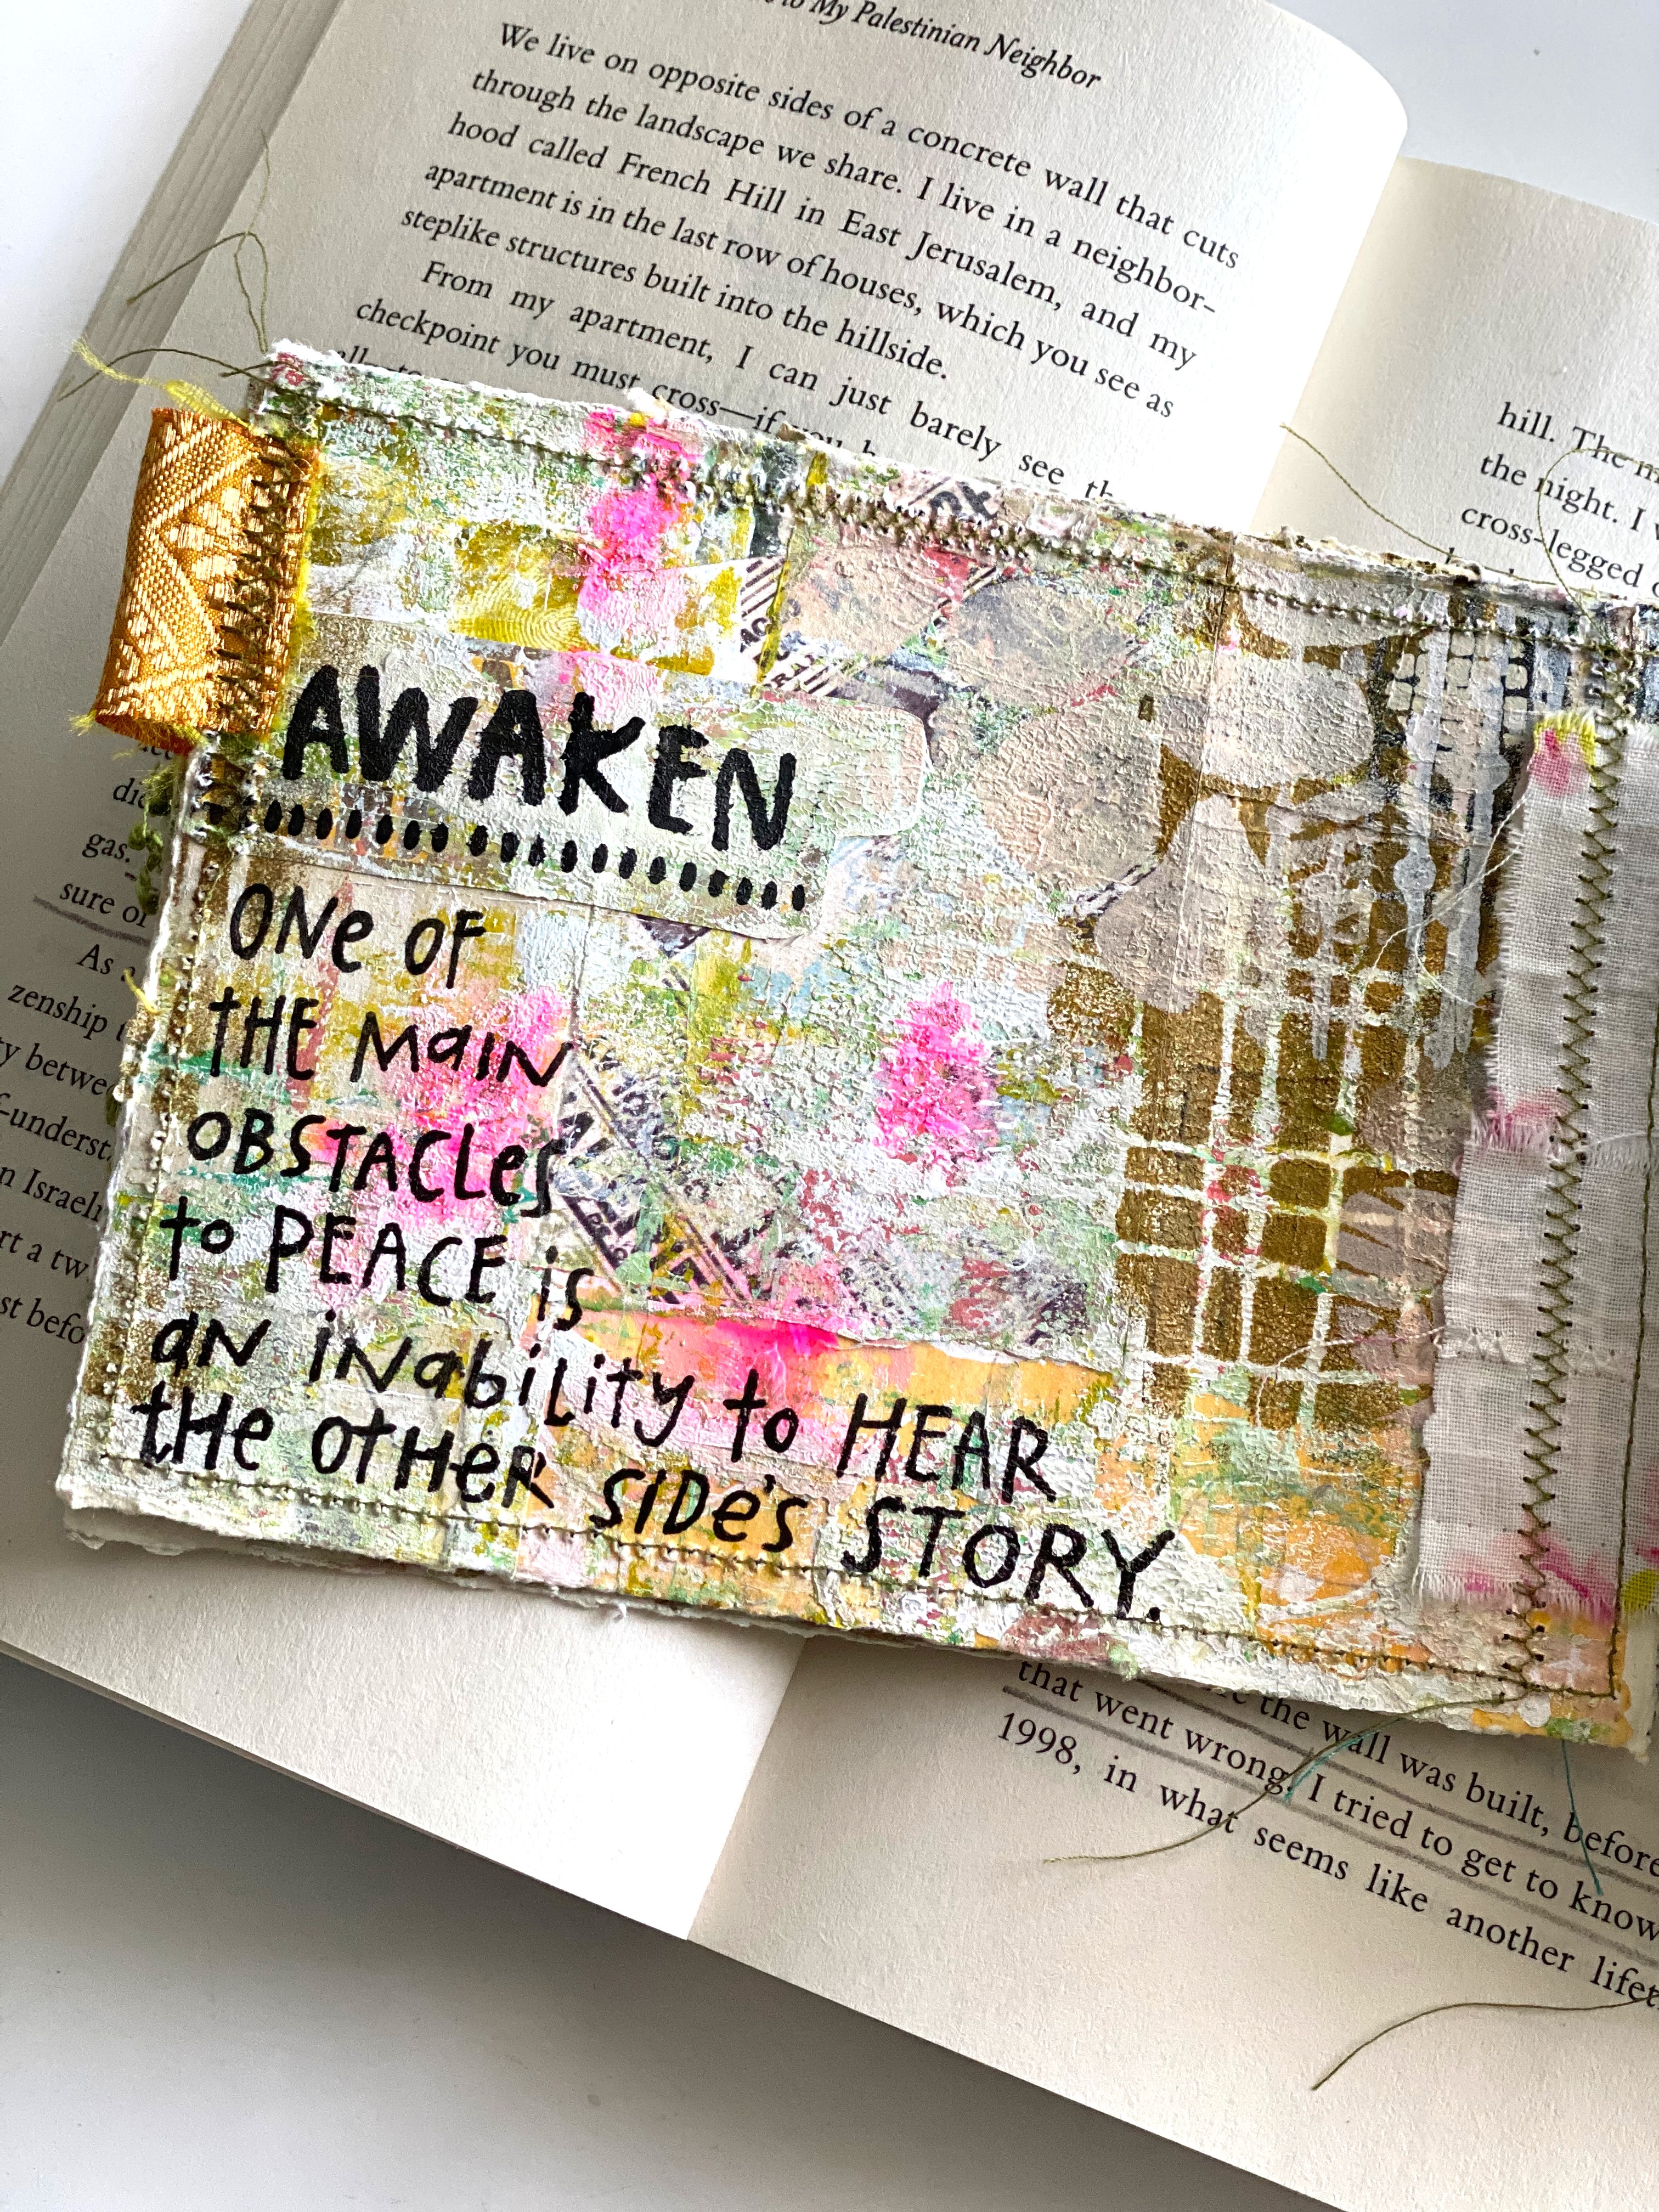 to My Palestinian Neighbor
We live on opposite sides of a concrete wall that cuts
through the landscape we share. I live in a neighbor-
hood called French Hill in East Jerusalem, and my
apartment is in the last row of houses, which you see as
steplike structures built into the hillside.
From my apartment, I can just barely see
checkpoint you must cross—if you
AWAKEN
ONe OF
tHE MaIN
OBSTACLes
to PEACE is
aN iNabiLity to HEAR
tHe OtHeR SIDe's STORY.
gas.
sure of
As
zenship
ty
n
rt a tw
st befo
hill. The
the night. I
cross-legged
the wall was built, before
that went wrong. I tried to get to know
1998, in what seems like another